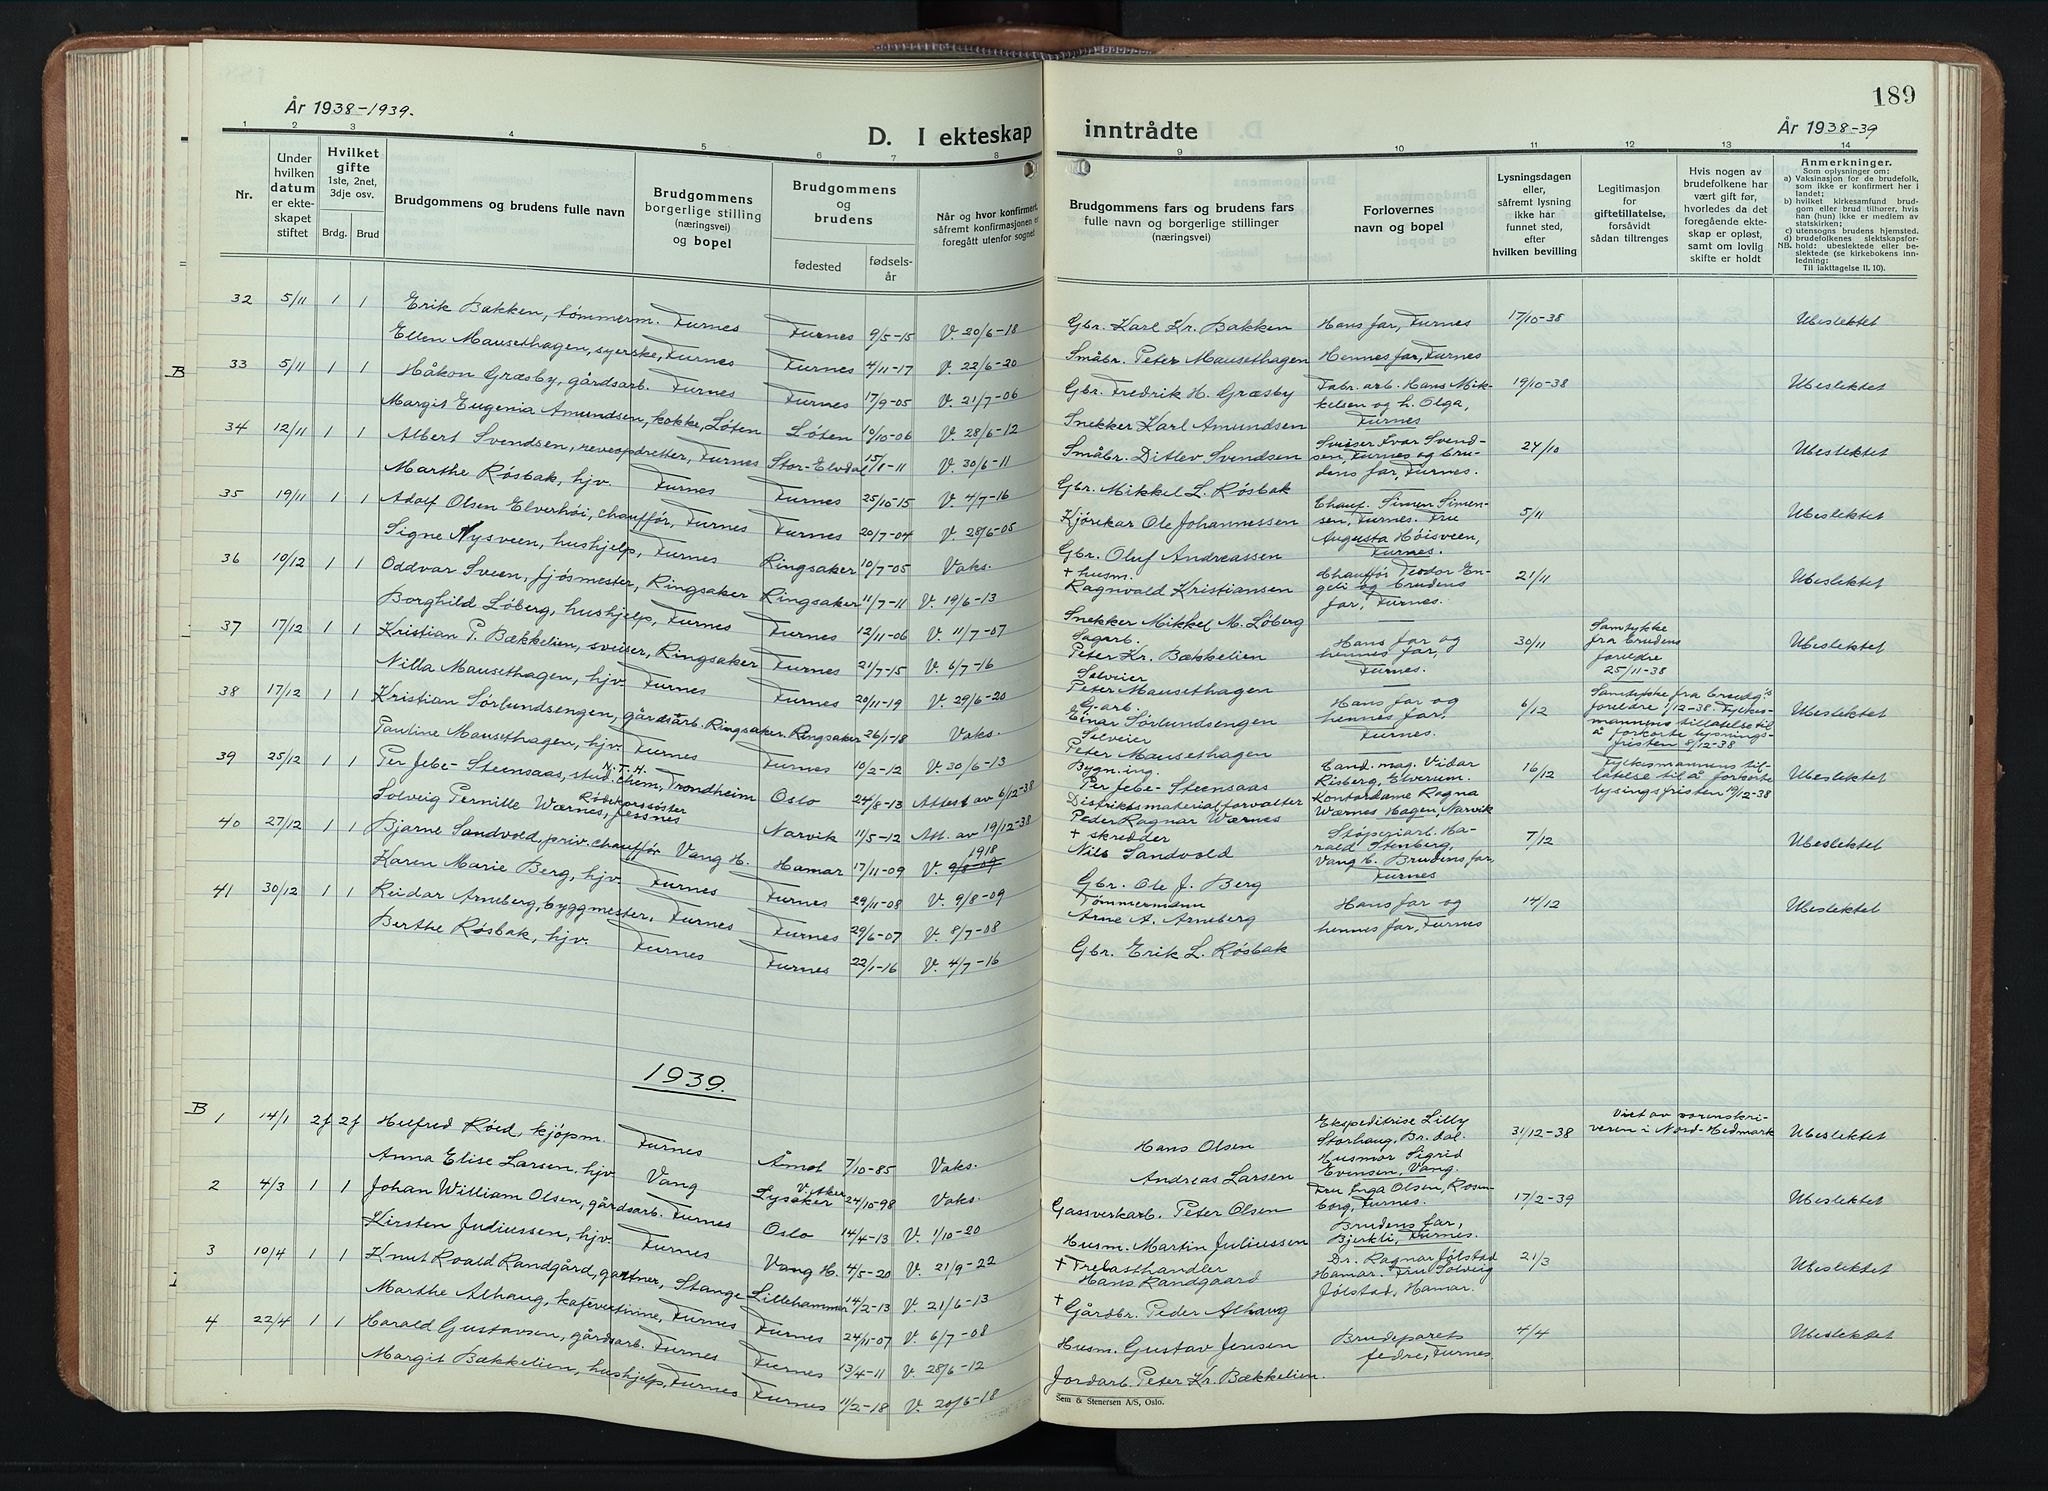 År 1938-1939.
D. I ekteskap
1 2 3 4 5 6 7 8
Nr.
Under hvilken datum er ekteskapet stiftet
Hvilket gifte 1ste, 2net, 3dje osv.
Brdg. Brud
Brudgommens og brudens fulle navn
Brudgommens borgerlige stilling (næringsvei) og bopel
Brudgommens og brudens
fødested
fødselsår
Når og hvor konfirmert, såfremt konfirmasjonen er foregått utenfor sognet
32 5/11 1 1 Erik Bakken, tømmerm. Furnes Furnes 9/5-15 V. 20/6-18
Ellen Mausethagen, syerske, Furnes Furnes 4/11-17 V. 22/6-20
B 33 5/11 1 1 Håkon Græsby, gårdsarb. Furnes Furnes 17/9-05 V. 21/7-06
Margit Eugenia Amundsen, kokke, Løten Løten 10/10-06 V. 28/6-12
34 12/11 1 1 Albert Svendsen, reveopdretter, Furnes Stor-Elvdal 15/8-11 V. 30/6-11
Marthe Røsbak, hjv. Furnes Furnes 25/10-15 V. 4/7-16
35 19/11 1 1 Adolf Olsen Elverhøi, chauffør, Furnes Furnes 20/7-04 V. 28/6-05
Signe Nysveen, hushjelp, Furnes Ringsaker 10/7-05 Vaks.
36 10/12 1 1 Oddvar Sveen, fjøsmester, Ringsaker Ringsaker 11/7-11 V. 19/6-13
Borghild Løberg, hushjelp, Furnes Furnes 12/11-06 V. 11/7-07
37 17/12 1 1 Kristian P. Bækkelien, sveiser, Ringsaker Furnes 21/7-15 V. 6/7-16
Nilla Mausethagen, hjv. Furnes Furnes 20/11-19 V. 29/6-20
38 17/12 1 1 Kristian Sørlundsengen, gårdsarb. Ringsaker. Ringsaker 26/1-18 Vaks.
Pauline Mausethagen, hjv. Furnes Furnes 10/2-12 V. 30/6-13
39 25/12 1 1 Per Jebe-Steensaas, stud. N.T.H. chem, Trondheim Oslo 24/8-13 Attest av 6/12-38
Solveig Pernille Wærnes, Røbekorssøster Jessnes Narvik 11/5-12 Att. av 19/12-38
40 27/12 1 1 Bjarne Sandvold, priv. chauffør Vang H. Hamar 17/11-09 V. 1918
Karen Marie Berg, hjv. Furnes Furnes 29/11-08 V. 9/8-09
41 30/12 1 1 Reidar Arneberg, byggmester, Furnes Furnes 29/6-07 V. 8/7-08
Berthe Røsbak, hjv. Furnes Furnes 22/1-16 V. 4/7-16
1939.
B 1 14/1 2f 2f Helfred Røed, kjøpm. Furnes Åmot 7/10-85 Vaks.
Anna Elise Larsen, hjv. Vang Lysaker V. Aker 24/10-98 Vaks.
2 4/3 1 1 Johan William Olsen, gårdsarb. Furnes Oslo 14/4-13 V. 1/10-20
Kirsten Juliussen, hjv. Furnes Vang H. 4/5-20 V. 21/9-22
3 10/4 1 1 Knut Roald Randgård, gartner, Stange Lillehammer 14/2-13 V. 21/6-13
Marthe Alhaug, kafévertinne, Furnes Furnes 24/11-07 V. 6/7-08
4 22/4 1 1 Harald Gustavsen, gårdsarb. Furnes Furnes 13/4-11 V. 28/6-12
Margit Bækkelien, hushjelp, Furnes Furnes 11/2-18 V. 20/6-18
189
inntrådte
År 1938-39
9 10 11 12 13 14
Brudgommens fars og brudens fars fulle navn og borgerlige stillinger (næringsvei)
Forlovernes navn og bopel
Lysningsdagen eller, såfremt lysning ikke har funnet sted, efter hvilken bevilling
Legitimasjon for giftetillatelse, forsåvidt sådan tiltrenges
Hvis nogen av brudefolkene har vært gift før, hvorledes da det foregående ekteskap er opløst, samt om lovlig skifte er holdt
Anmerkninger.
Som oplysninger om:
a) Vaksinasjon for de brudefolk, som ikke er konfirmert her i landet;
b) hvilket kirkesamfund brudgom eller brud tilhører, hvis han (hun) ikke er medlem av statskirken;
c) utensogns brudens hjemsted.
d) brudefolkenes slektskapsforhold: ubeslektede eller beslektede (se kirkebokens innledning:
NB.
Til iakttagelse II. 10).
Gbr. Karl Kr. Bakken Hans far, Furnes 17/10-38 Ubeslektet
Småbr. Peter Mausethagen Hennes far, Furnes
Gbr. Fredrik H. Græsby Fabr. arb. Hans Mik- 19/10-38 Ubeslektet
kelsen og h. Olga,
Snekker Karl Amundsen Furnes
Småbr. Ditlev Svendsen Sveiser Ivar Svend- 24/10 Ubeslektet
sen, Furnes og bru-
dens far, Furnes.
Gbr. Mikkel L. Røsbak
Kjørekar Ole Johannessen Chauf. Simen Simen- 5/11 Ubeslektet
sen, Furnes. Fru
Augusta Høisveen,
Gbr. Oluf Andreassen Furnes.
+ husm. Ragnvald Kristiansen Chauffør Teodor En- 21/11 Ubeslektet
geli og brudens
far, Furnes.
Snekker Mikkel M. Løberg
Sagarb. Peter Kr. Bækkelien Hans far og 30/11 Samtykke Ubeslektet
hennes far, fra brudens
Furnes. foreldre
25/11-38
Selveier Peter Mausethagen
G.arb. Einar Sørlundsengen Hans far og 6/12 Samtykke fra brudg's Ubeslektet
hennes far, foreldre 1/12-38 Fylkes-
Furnes. mannens tillatelse til
å forkorte lysnings-
fristen 8/12-38
Selveier Peter Mausethagen
Bygn.ing. Per Jebe-Steensaas Cand. mag. Vidar 16/12 Fylkesmannens til- Ubeslektet
Risberg, Elverum. latelse til å forkorte
Kontordame Ragna lysingsfristen 19/12-38
Distriktsmaterialforvalter Peder Ragnar Wærnes Wærnes Hagen, Narvik
+ skredder Nils Sandvold Støperiarb. Ha- 7/12 Ubeslektet
rald Stenberg,
Vang H. Brudens far,
Gbr. Ole J. Berg Furnes
Tømmermann Arne A. Arneberg Hans far og 14/12 Ubeslektet
hennes far, Furnes
Gbr. Erik L. Røsbak
Hans Olsen Ekspeditrise Lilly 31/12-38 Viet av sorenskri- Ubeslektet
Storhaug, Br.dal. veren i Nord-Hedmark
Husmor Sigrid
Andreas Larsen Evensen, Vang.
Gassverkarb. Peter Olsen Fru Inga Olsen, Rosen- 17/2-39 Ubeslektet
borg, Furnes.
Brudens far,
Husm. Martin Juliussen Bjerkli, Furnes.
+ Trelasthandler Hans Randgaard Dr. Ragnar Jølstad 21/3 Ubeslektet
Hamar. Fru Solveig
Jølstad, Hamar.
+ Gårdbr. Peder Alhaug
Husm. Gustav Jensen Brudeparets 4/4 Ubeslektet
fedre, Furnes.
Jordarb. Peter Kr. Bækkelien.
Sem & Stenersen A/S, Oslo.